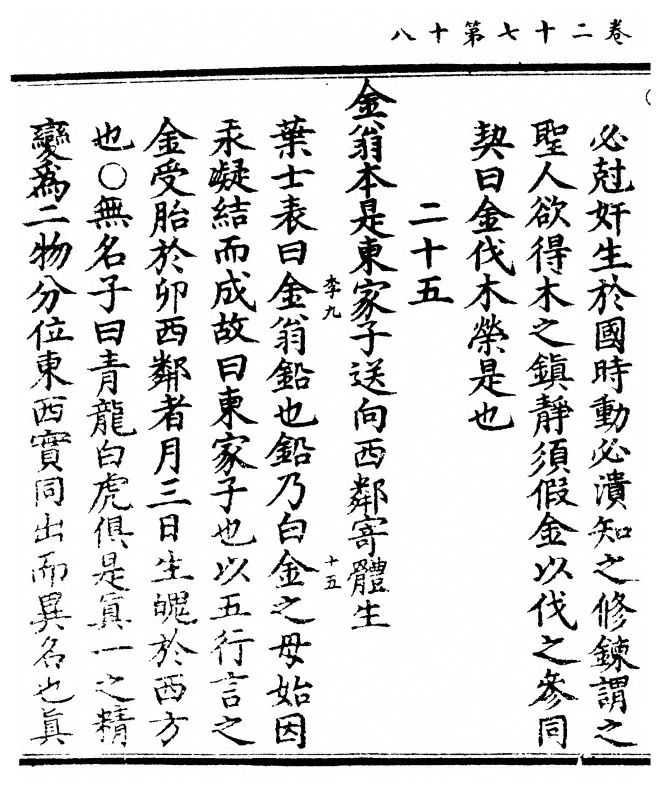 卷二十七第十八
必尅奸生於國時動必潰知之修鍊謂之
聖人欲得木之鎮靜須假金以伐之參同
契曰金伐木榮是也
二十五
金翁本是東家子送向西鄰寄體生
李九
十五
葉士表曰金翁鉛也鉛乃白金之母始因
汞凝結而成故曰東家子也以五行言之
金受胎於卯西鄰者月三日生魄於西方
也○無名子曰青龍白虎俱是真一之精
變為二物分位東西實同出而異名也真